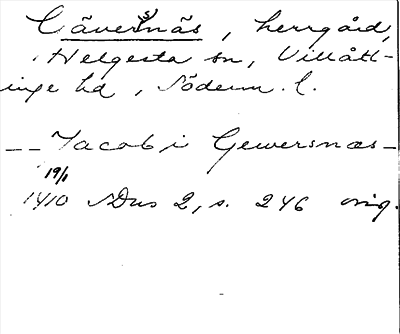 Cäversnäs, herrgård,
Helgesta sn, Villått-
inge hd, Söderm. l.
-- Jacob i Gewersnæs -
19/1
1410 SDns 2, s. 246 orig.